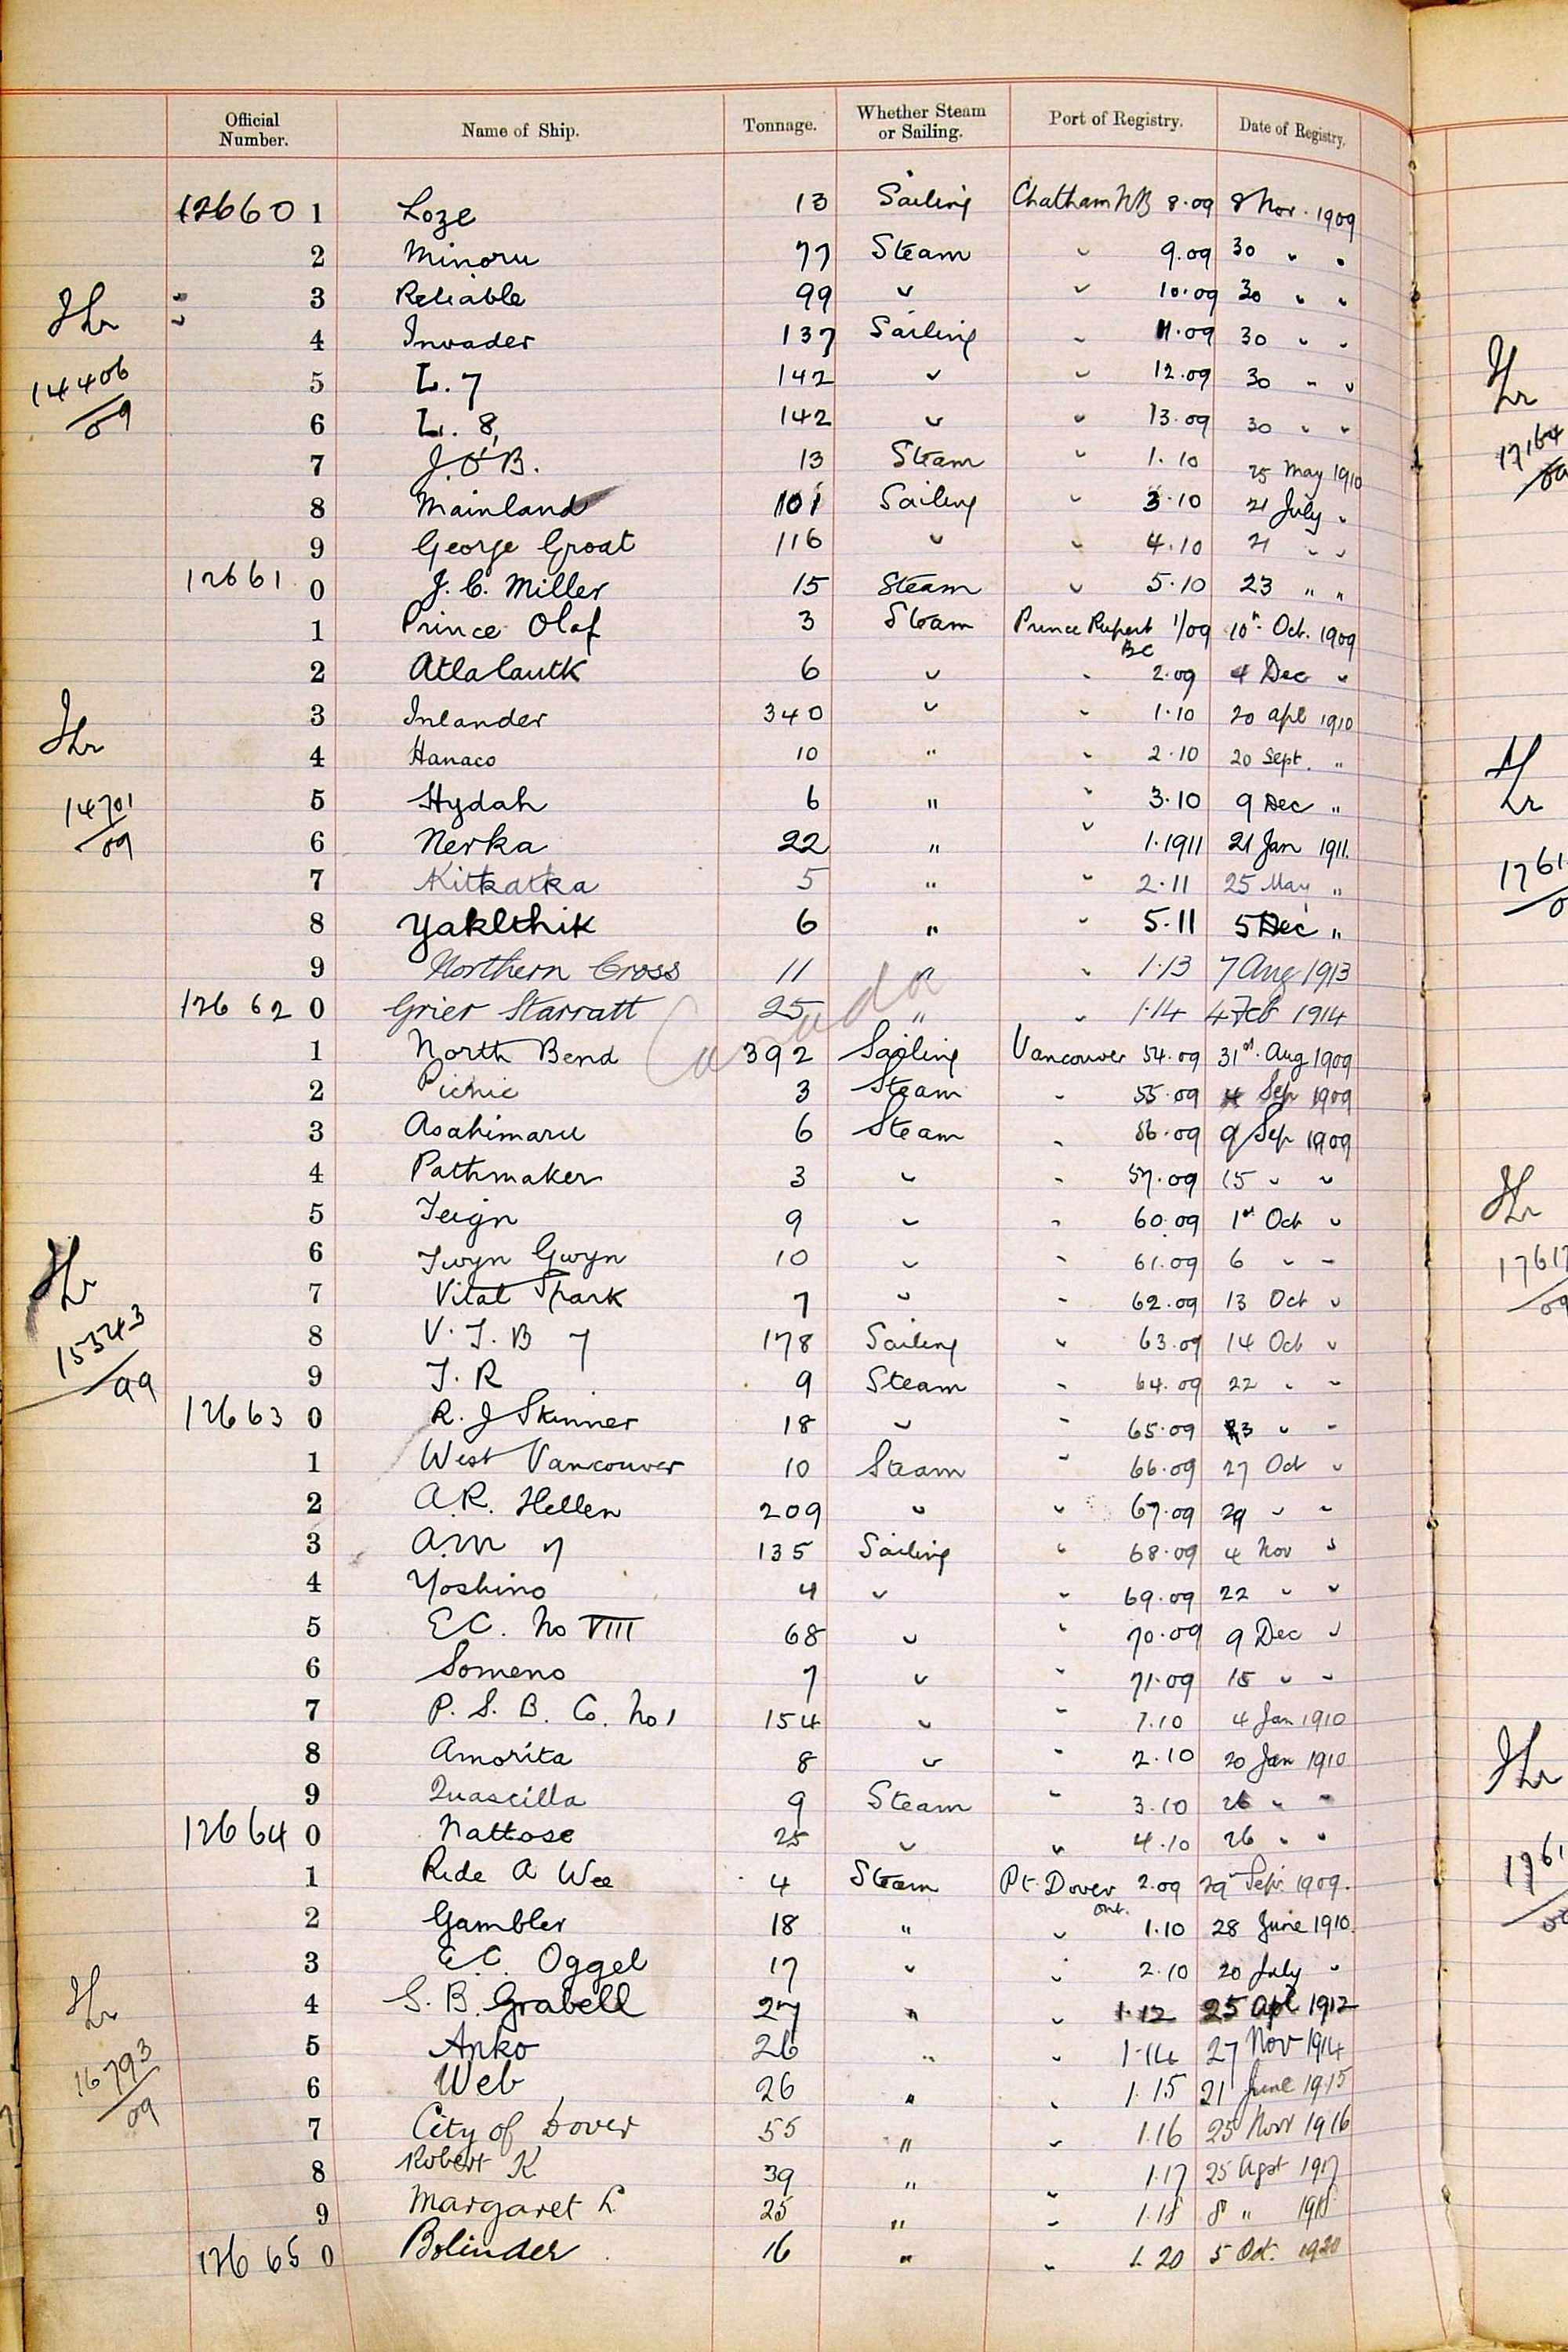 Official Number. Name of Ship. Tonnage. Whether Steam or Sailing. Port of Registry. Date of Registry.
12660 1 Loze 13 Sailing Chatham NB 8.09 8 Nov. 1909
2 Minoru 77 Steam " 9.09 30 " "
" 3 Reliable 99 " " 10.09 30 " "
" 4 Invader 137 Sailing " 11.09 30 " "
14406
09
5 L. 7 142 " " 12.09 30 " "
6 L. 8, 142 " " 13.09 30 " "
7 J.O'B. 13 Steam " 1.10 25 May 1910
8 Mainland 101 Sailing " 3.10 21 July "
9 George Groat 116 " " 4.10 21 " "
12661 0 J. C. Miller 15 Steam " 5.10 23 " "
1 Prince Olaf 3 Steam Prince Rupert BC 1/09 10th Oct. 1909
2 Atlalautk 6 " " 2.09 4 Dec "
3 Inlander 340 " " 1.10 20 Apl 1910
4 Hanaco 10 " " 2.10 20 Sept. "
14701
09
5 Hydah 6 " " 3.10 9 Dec "
6 Nerka 22 " " 1.1911 21 Jan 1911.
7 Kitkatka 5 " " 2.11 25 May "
8 Yaklthik 6 " " 5.11 5 Dec "
9 Northern Cross 11 " " 1.13 7 Aug 1913
12662 0 Grier Starratt 25 " " 1.14 4 Feb 1914
Canada
1 North Bend 392 Sailing Vancouver 54.09 31st Aug 1909
2 Picnic 3 Steam " 55.09 4 Sep 1909
3 Asahimaru 6 Steam " 56.09 9 Sep 1909
4 Pathmaker 3 " " 57.09 15 " "
5 Teign 9 " " 60.09 1st Oct "
6 Twyn Gwyn 10 " " 61.09 6 " "
7 Vital Spark 7 " " 62.09 13 Oct "
15343
09
8 V. T. B 7 178 Sailing " 63.09 14 Oct "
9 T. R 9 Steam " 64.09 22 " "
12663 0 R. J Skinner 18 " " 65.09 23 " "
1 West Vancouver 10 Steam " 66.09 27 Oct "
2 A.R. Hellen 209 " " 67.09 29 " "
3 A.M 7 135 Sailing " 68.09 4 Nov "
4 Yoshino 4 " " 69.09 22 " "
5 E C. No VIII 68 " " 70.09 9 Dec "
6 Someno 7 " " 71.09 15 " "
7 P. S. B. Co. No 1 154 " " 1.10 4 Jan 1910
8 Amorita 8 " " 2.10 20 Jan 1910
9 Quascilla 9 Steam " 3.10 26 " "
12664 0 Nattose 25 " " 4.10 26 " "
1 Ride A Wee 4 Steam Pt. Dover Ont. 2.09 29 Sepr 1909.
2 Gambler 18 " " 1.10 28 June 1910.
3 E.C. Oggel 17 " " 2.10 20 July "
4 S. B. Grabell 27 " " 1.12 25 Apl 1912
5 Anko 26 " " 1.14 27 Nov 1914
16793
09
6 Web 26 " " 1.15 21 June 1915
7 City of Dover 55 " " 1.16 25 Novr 1916
8 Robert K 39 " " 1.17 25 Agst 1917
9 Margaret L 25 " " 1.18 8 " 1918
12665 0 Bolinder 16 " " 1.20 5 Oct. 1920
17164